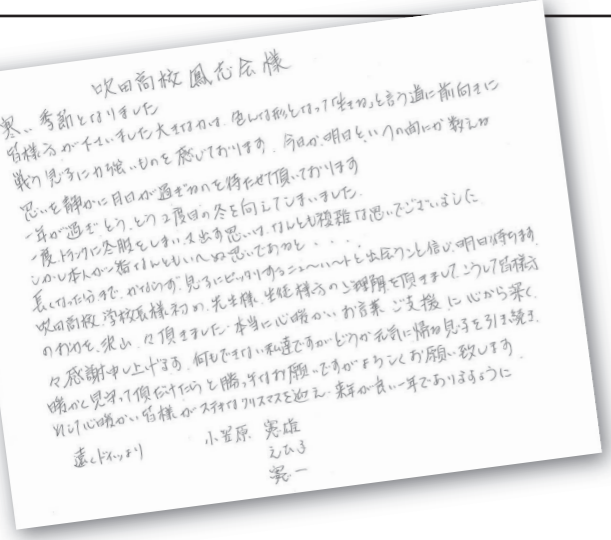 吹田高校 鳳志会様
寒い季節となりました
皆様方が下さいました大きな力は、色んな形となって「生きる」と言う道に前向きに
戦う晃子に力強いものを感じております。今日か、明日かといつの間にか数えな
思いを静かに月日が過ぎるのを待たせて頂いております
一年が過ぎ とうとう2度目の冬を向えてしまいました。
一度トランクに冬服をしまい又出す思いは、なんとも複雑な思いでございました
しかし本人が一番なんともいへぬ思いであると・・・
長くなった分まで、かならず晃子にピッタリするニューハートと出会うこと信じ、明日待ちます
吹田高校 学校長様初め、先生様、生徒様方のご理解を頂きまして、こうして皆様方
のお力を、沢山、々頂きました。本当に心暖かいお言葉 ご支援に心から深く、
々感謝申し上げます。何もできない私達ですがどうか元気に帰る晃子を引き続き、
暖かく見守って頂だけたらと勝手なお願いですがよろしくお願い致します
そして心暖かい皆様がステキなクリスマスを迎え、来年が良い一年でありますように
遠くドイツより
小笠原 憲雄
えひろ
憲一